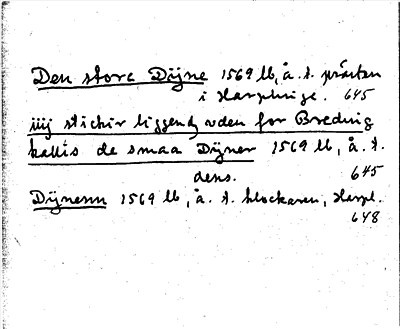 Den stora Dÿne 1569 lb, å. t. prästen
i Harplinge. 645
iiij stickir liggendz uden for Brednig
kallis de smaa Dÿner 1569 lb, å. t.
dens. 645
Dÿnerna 1569 lb, å. t. klockaren, Harpl.
648